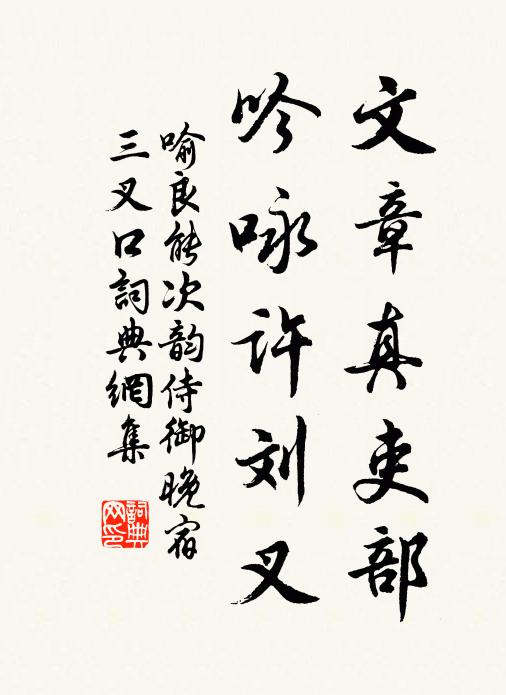 文章真吏部
吟咏许刘叉
喻良能次韵侍御晚宿
三叉口詞典網集
詞典
网印